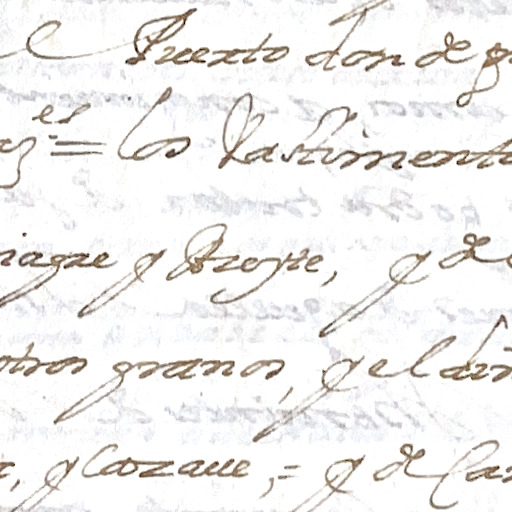 Puerto donde
es = los Vastimento
iagre y Azeyte, y de
otros granos, y el
y Cazaue, = y de Car